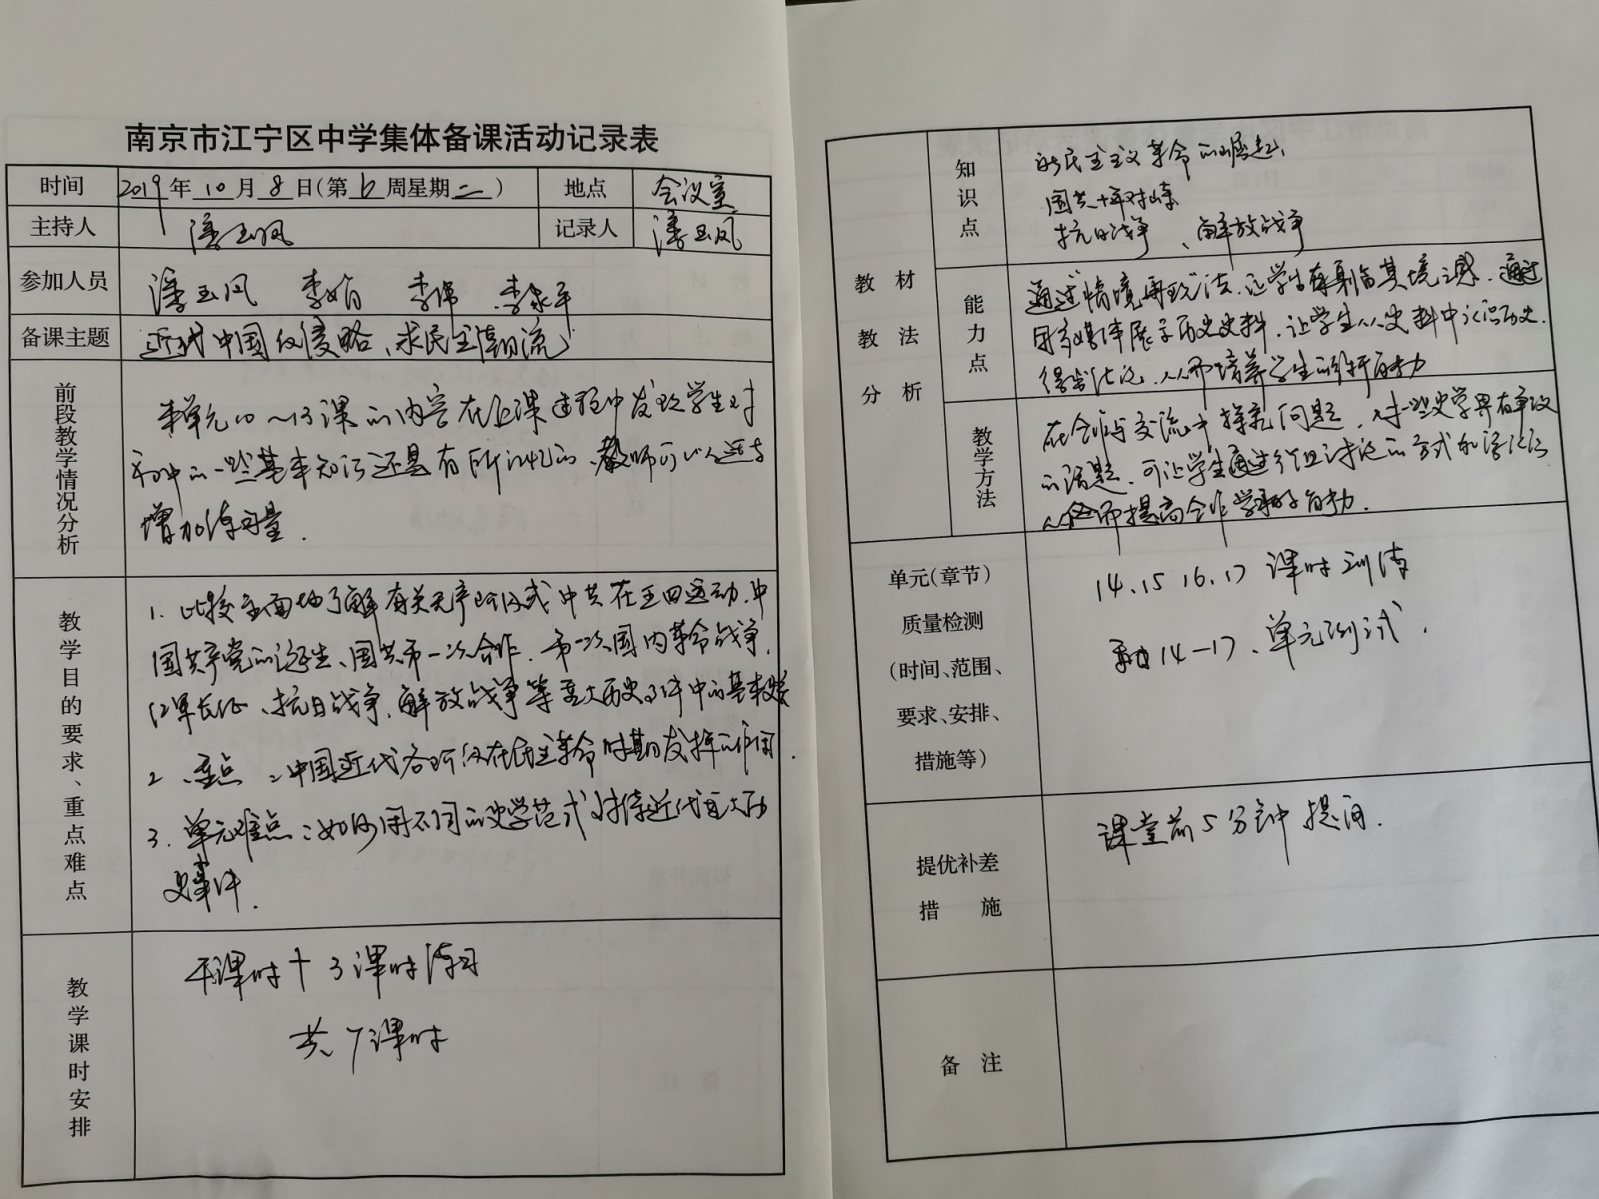 南京市江宁区中学集体备课活动记录表
时间 2019年10月8日(第6周星期二) 地点 会议室
主持人 潘玉凤 记录人 潘玉凤
参加人员 潘玉凤 李娟 李伟
备课主题 近代中国反侵略、求民主潮流
前段教学情况分析
本单元10~13课的内容在上课过程中发现学生对
初中的一些基本知识还是有所记忆的,教师可以适当
增加练习量.
教学目的要求、重点难点
1.比较全面地了解有关无产阶级 中共在五四运动.中
国共产党的诞生、国共第一次合作.第一次国内革命战争.
红军长征、抗日战争.解放战争等重大历史事件中的基本
2、重点:中国近代各阶级在民主革命时期发挥的作用.
3.单元难点:如何用不同的史学范式对待近代重大历
史事件.
教学课时安排
课时+3课时练习
共7课时
教材教法分析
知识点
新民主主义革命的崛起、
国共十年对峙
抗日战争、解放战争
能力点
通过情境再现法.让学生有身临其境之感.通过
用多媒体展示历史史料.让学生从史料中认识历史.
得出结论.从而培养学生的分析能力
教学方法
在合作与交流中探究问题,对一些史学界有争议
的话题.可让学生通过分组讨论的方式
从而提高合作学习的能力.
单元(章节)
质量检测
(时间、范围、
要求、安排、
措施等)
14.15 16.17 课时训练
14—17、单元测试.
提优补差
措施
课堂前5分钟提问.
备注